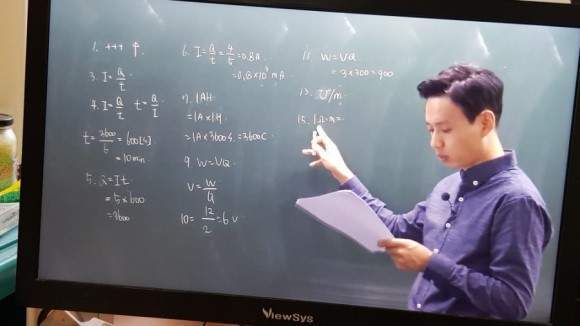 1. +++ ↑.
3. I = Q/t
4. I = Q/t  t = Q/I
t = 3600/6 = 600[s]
= 10min
5. Q = It
= 5×600
= 3600
6. I = Q/t = 4/5 = 0.8a
= 0.8×10³ mA
7. 1AH
= 1A×1H
= 1A×3600s. = 3600C
9. W = VQ
V = W/Q
10 = 12/2 = 6 V
11. W = VQ
= 3×300 = 900
13. ℧/m
15. 1Ω·m =
ViewSys